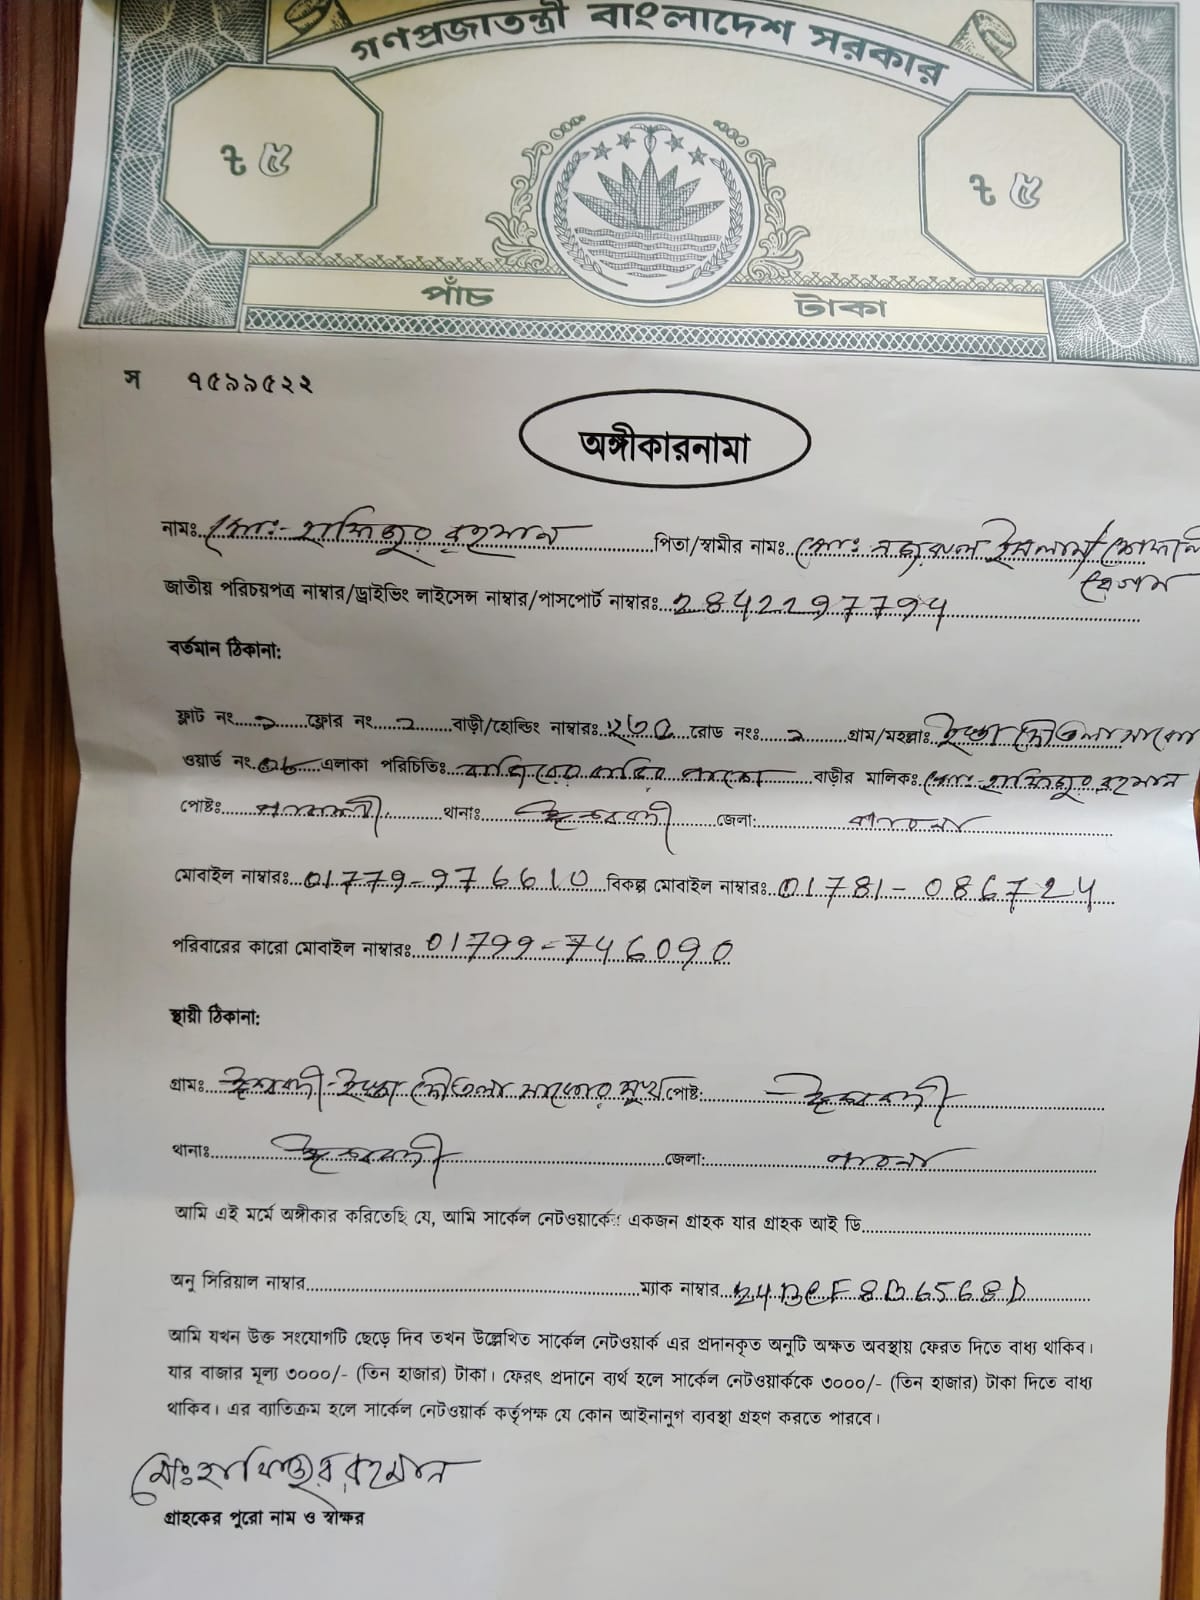 গণপ্রজাতন্ত্রী বাংলাদেশ সরকার
৳ ৫ ৳ ৫
পাঁচ টাকা
স ৭৫৯৯৫২২
অঙ্গীকারনামা
নামঃ মোঃ- হাফিজুর রহমান পিতা/স্বামীর নামঃ মোঃ নজরুল ইসলাম/
বেগম
জাতীয় পরিচয়পত্র নাম্বার/ড্রাইভিং লাইসেন্স নাম্বার/পাসপোর্ট নাম্বারঃ 2842297794
বর্তমান ঠিকানা:
ফ্লাট নং ফ্লোর নং বাড়ী/হোল্ডিং নাম্বারঃ রোড নংঃ গ্রাম/মহল্লাঃ
ওয়ার্ড নং এলাকা পরিচিতিঃ বাড়ীর মালিকঃ মোঃ- হাফিজুর রহমান
পোষ্টঃ থানাঃ ঈশ্বরদী জেলা: পাবনা
মোবাইল নাম্বারঃ 01779-976610 বিকল্প মোবাইল নাম্বারঃ 01781-086724
পরিবারের কারো মোবাইল নাম্বারঃ 01799-746090
স্থায়ী ঠিকানা:
গ্রামঃ ঈশ্বরদী পোষ্ট: ঈশ্বরদী
থানাঃ ঈশ্বরদী জেলা: পাবনা
আমি এই মর্মে অঙ্গীকার করিতেছি যে, আমি সার্কেল নেটওয়ার্কের একজন গ্রাহক যার গ্রাহক আই ডি
অনু সিরিয়াল নাম্বার ম্যাক নাম্বার 24BCF8B6568D
আমি যখন উক্ত সংযোগটি ছেড়ে দিব তখন উল্লেখিত সার্কেল নেটওয়ার্ক এর প্রদানকৃত অনুটি অক্ষত অবস্থায় ফেরত দিতে বাধ্য থাকিব।
যার বাজার মূল্য ৩০০০/- (তিন হাজার) টাকা। ফেরৎ প্রদানে ব্যর্থ হলে সার্কেল নেটওয়ার্ককে ৩০০০/- (তিন হাজার) টাকা দিতে বাধ্য
থাকিব। এর ব্যাতিক্রম হলে সার্কেল নেটওয়ার্ক কর্তৃপক্ষ যে কোন আইনানুগ ব্যবস্থা গ্রহণ করতে পারবে।
মোঃ হাফিজুর রহমান
গ্রাহকের পুরো নাম ও স্বাক্ষর